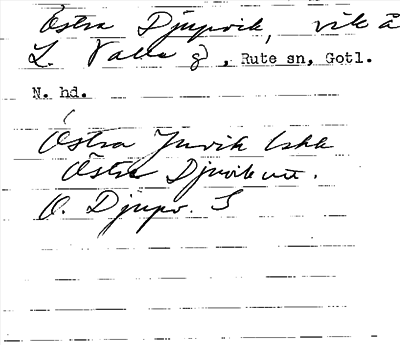 Östra Djupvik, vik å
L. Valle g, Rute sn, Gotl.
N. hd.
Östra Juvik Iskk
Östra Djuvik utt.
Ö. Djupv. S